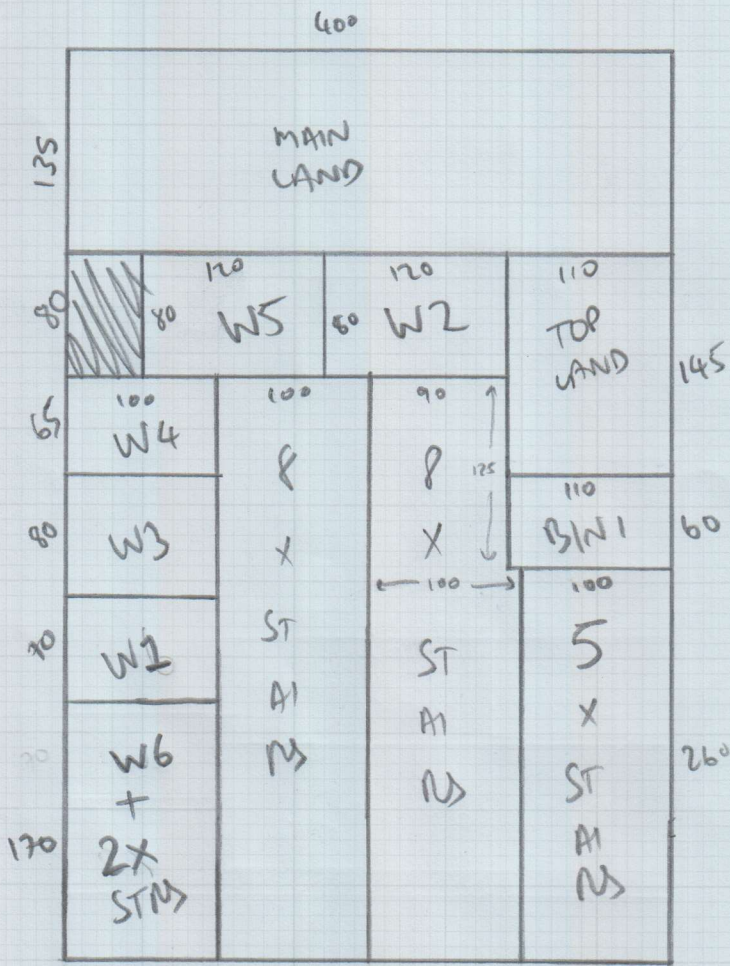 400
135
MAIN
LAND
80
120
80 W5
120
80 W2
110
TOP
LAND
145
65
100
W4
100
8
X
ST
AI
RS
90
8
125
X
100
ST
AI
RS
110
BIN 1
60
80
W3
70
W1
100
5
X
ST
AI
RS
260
170
W6
+
2X
STRS